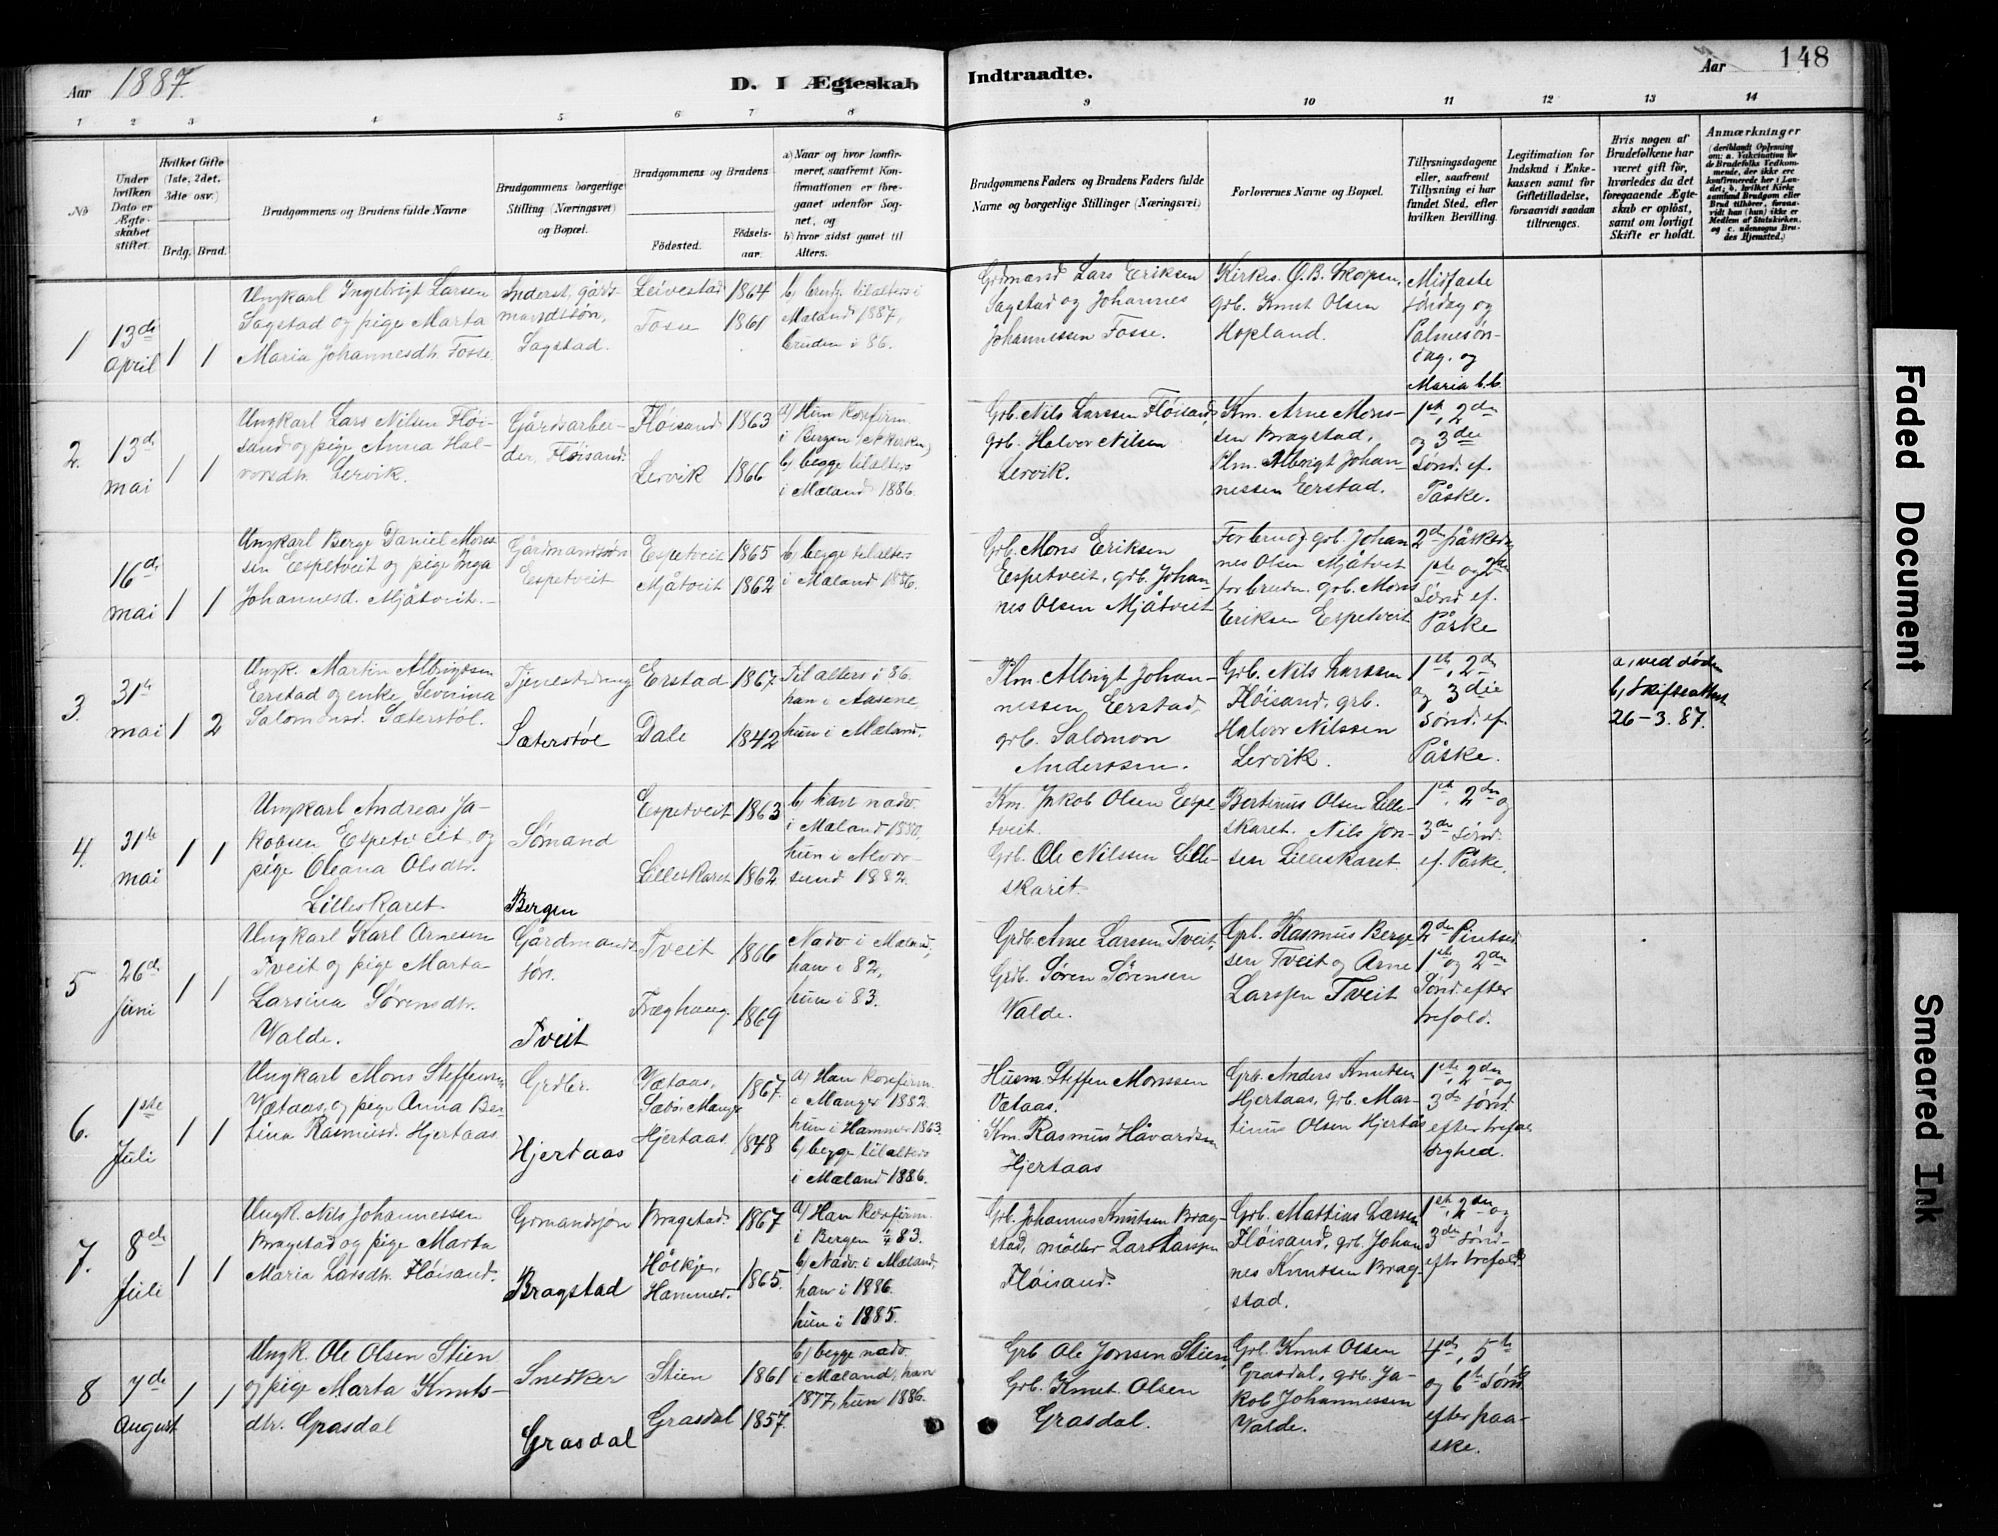 Aar 1887.
D. I Ægteskab
Indtraadte.
Aar
148
1 2 3 4 5 6 7 8 9 10 11 12 13 14
No
Under
hvilken
Dato er
Ægte-
skabet
stiftet.
Hvilket Gifte
(1ste, 2det,
3die osv.)
Brdg. Brud.
Brudgommens og Brudens fulde Navne
Brudgommens borgerlige
Stilling (Næringsvei)
og Bopæl.
Brudgommens og Brudens
Fødested.
Fødsels-
aar.
a) Naar og hvor konfir-
meret, saafremt Kon-
firmationen er fore-
gaaet udenfor Sog-
net, og
b) hvor sidst gaaet til
Alters.
Brudgommens Faders og Brudens Faders fulde
Navne og borgerlige Stillinger (Næringsvei)
Forlovernes Navne og Bopæl.
Tillysningsdagene
eller, saafremt
Tillysning ei har
fundet Sted, efter
hvilken Bevilling.
Legitimation for
Indskud i Enke-
kassen samt for
Giftetilladelse,
forsaavidt saadan
tiltrænges.
Hvis nogen af
Brudefolkene har
været gift før,
hvorledes da det
foregaaende Ægte-
skab er opløst,
samt om lovligt
Skifte er holdt.
Anmærkninger
(deriblandt Oplysning
om: a. Vakcination for
de Brudefolks Vedkom-
mende, der ikke ere
konfirmerede her i Lan-
det; b. hvilket Kirke
samfund Brudgom eller
Brud tilhører, forsaa-
vidt han (hun) ikke er
Medlem af Statskirken,
og c. udensogns Bru-
des Hjemsted.)
1
13de
April
1 1
Ungkarl Ingebrigt Larsen
Sagstad og pige Marta
Maria Johannesdtr. Fosse.
Inderst, gård-
mandssøn,
Sagstad.
Leivestad 1864
Fosse 1861
b) brudg. tilalters i
Mæland 1887,
bruden i 86.
Grdmand Lars Eriksen
Sagstad og Johannes
Johannessen Fosse.
Kirkes. O. B. Skorpen,
grb. Knut Olsen
Hopland.
Midfaste
søndag og
Palmesøn-
dag. og
Maria b. b.
2.
13de
mai
1 1
Ungkarl Lars Nilsen Fløi-
sand og pige Anna Hal-
vorsdtr. Lervik.
Gårdsarbei-
der, Fløisand.
Fløisand 1863
Lervik 1866
a) Hun konfirm.
i Bergen
b) begge tilalters
i Mæland 1886.
Grb. Nils Larssen Fløisand,
grb. Halvor Nilsen
Lervik.
Km. Arne Mons-
sen Bragstad,
Plm. Albrigt Johan-
nessen Eerstad.
1ste, 2den
og 3die
sønd. ef.
Påske.
16de
mai
1 1
Ungkarl Berge Daniel Mons-
sen Espetveit og pige Inga
Johannesd. Mjåtveit.
Gårdmandssøn
Espetveit
Espetveit 1865
Mjåtveit 1862
b) begge tilalters
i Mæland 1886.
Grb. Mons Eriksen
Espetveit, grb. Johan-
nes Olsen Mjåtveit
For brudg. grb. Johan
nes Olsen Mjåtvet
for bruden. grb. Mons
Eriksen Espetveit
2den påskedag
1ste og 2den
Sønd. ef.
Påske
3.
31te
mai
1 2
Ungk. Martin Albrigtsen
Eerstad og enke Severina
Salomonsd. Sæterstøl.
Tjenestedreng
Sæterstøl
Erstad 1867
Dale 1842
til alters i 86.
han i Aasene,
hun i Mæland.
Plm. Albrigt Johan-
nessen Eerstad,
grb. Salomon
Anderssen.
Grb. Nils Larssen
Fløisand, grb.
Halvor Nilssen
Lervik.
1ste, 2den
og 3die
sønd. ef.
Påske.
a, ved døden
b, skifteattest
26-3.87.
4.
31te
mai
1 1
Ungkarl Andreas Ja-
kobsen Espetveit og
pige Oleana Olsdtr.
Lilleskaret.
Sømand
Bergen
Espetveit 1863
Lilleskaret 1862.
b) han nadv.
i Mæland 1880,
hun i Alver-
sund 1882.
Km. Jakob Olsen Espe
tveit.
Grb. Ole Nilssen Lille-
skaret.
Bertinus Olsen Lille-
skaret. Nils Jon-
sen Lilleskaret.
1ste, 2den og
3die sønd.
ef. Påske.
5
26de
juni
1 1
Ungkarl Karl Arnesen
Tveit og pige Marta
Larsina Sørensdtr.
Valde.
Gårdmands
søn.
Tveit
Tveit 1866
Træghaug 1869
Nadv. i Mæland,
han i 82,
hun i 83.
Grdb. Arne Larssen Tveit,
Grdb. Søren Sørensen
Valde.
Grb. Rasmus Berge
sen Tveit og Arne
Larssen Tveit
2den Pintsed.
1ste og 2den
Sønd. efter
trefold.
6.
1ste
Juli
1 1
Ungkarl Mons Steffensen
Vætaas, og pige Anna Ber-
tina Rasmusd. Hjertaas.
Grdbr.
Hjertaas
Vætaas, 1867.
Sæbø Manger
Hjertaas. 1848
a) Han konfirm.
i Manger 1882.
hun i Hammer 1863.
b) begge tilalters
i Mæland 1886.
Husm. Steffen Monssen
Vætaas.
Km. Rasmus Håvardsen
Hjertaas
Grb. Anders Knutsen
Hjertaas, grb. Mar-
tinus Olsen Hjertås
1ste, 2den og
3die sønd.
efter trefol
dighed.
7.
8de
Juli
1 1
Ungk. Nils Johannessen
Bragstad og pige Marta
Maria Larsdtr. Fløisand.
Grdmandssøn
Bragstad
Bragstad. 1867
Hølkje, 1865.
Hammer.
a) Han konfirm.
i Bergen 83.
b) Nadv. i Mæland,
han i 1886.
hun i 1885.
Grb. Johannes Knutsen Brag-
stad, møller Lars Larssen
Fløisand.
Grb. Mattias Larsen
Fløisand, grb. Johan
nes Knutsen Brag-
stad.
1ste, 2den og
3die sønd-
eftr trefold.
8
7de
August
1 1
Ungk. Ole Olsen Stien
og pige Marta Knuts-
dtr. Grasdal
Snedker
Grasdal
Stien 1861
Grasdal 1857.
b) begge nadv.
i Mæland, han
1877, hun 1886.
Grb Ole Jonsen Stien,
Grb. Knut Olsen
Grasdal.
Grb. Knut Olsen
Grasdal, grb. Ja-
kob Johannessen
Valde.
4de, 5te
og 6te sønd.
efter paa-
ske.
Faded Document
Smeared Ink